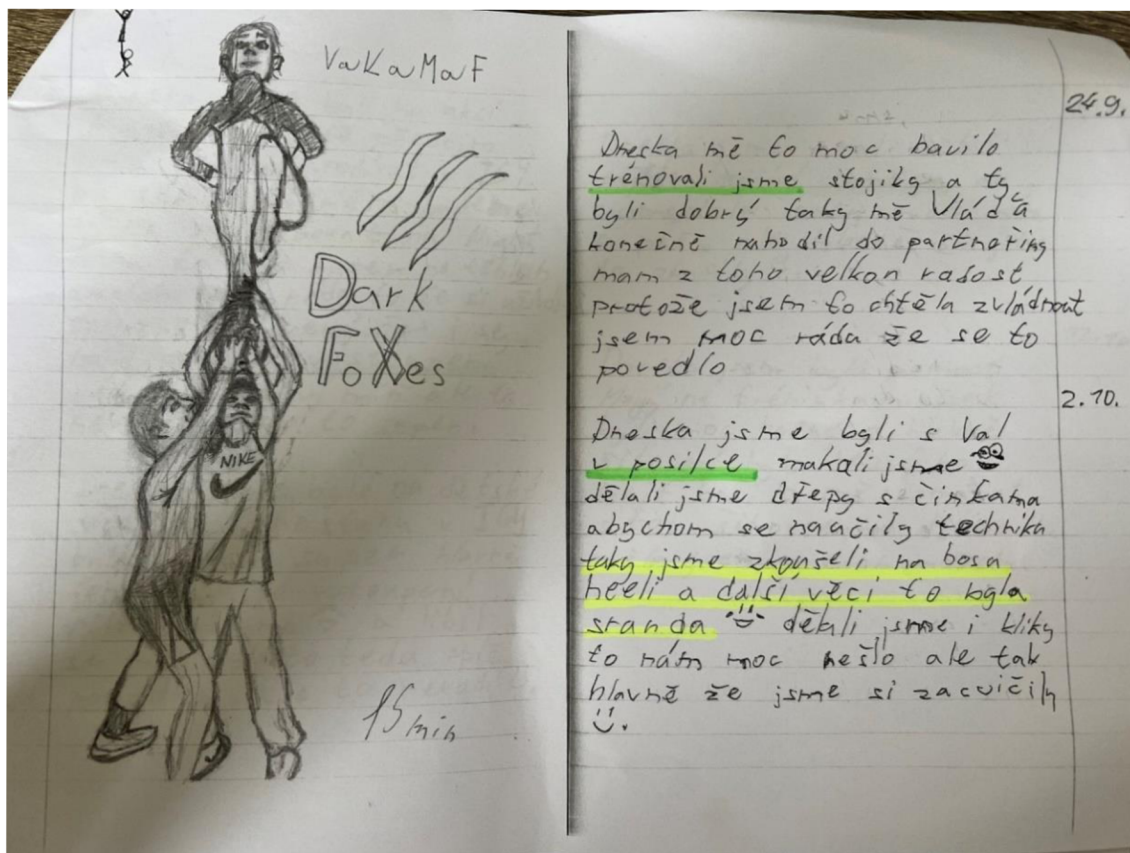 VaKaMaF
Dark
FoXes
NIKE
15 min
24.9.
Dneska mě to moc bavilo
trénovali jsme stojiky a ty
byli dobrý taky mě Vláďa
konečně nahodil do partneřiny
mam z toho velkou radost
protože jsem to chtěla zvládnout
jsem moc ráda že se to
povedlo
2.10.
Dneska jsme byli s Val
v posilce makali jsme
dělali jsme dřepy s činkama
abychom se naučily technika
taky jsme zkoušeli na bosa
heeli a další věci to byla
sranda dělali jsme i kliky
to nám moc nešlo ale tak
hlavně že jsme si zacvičily